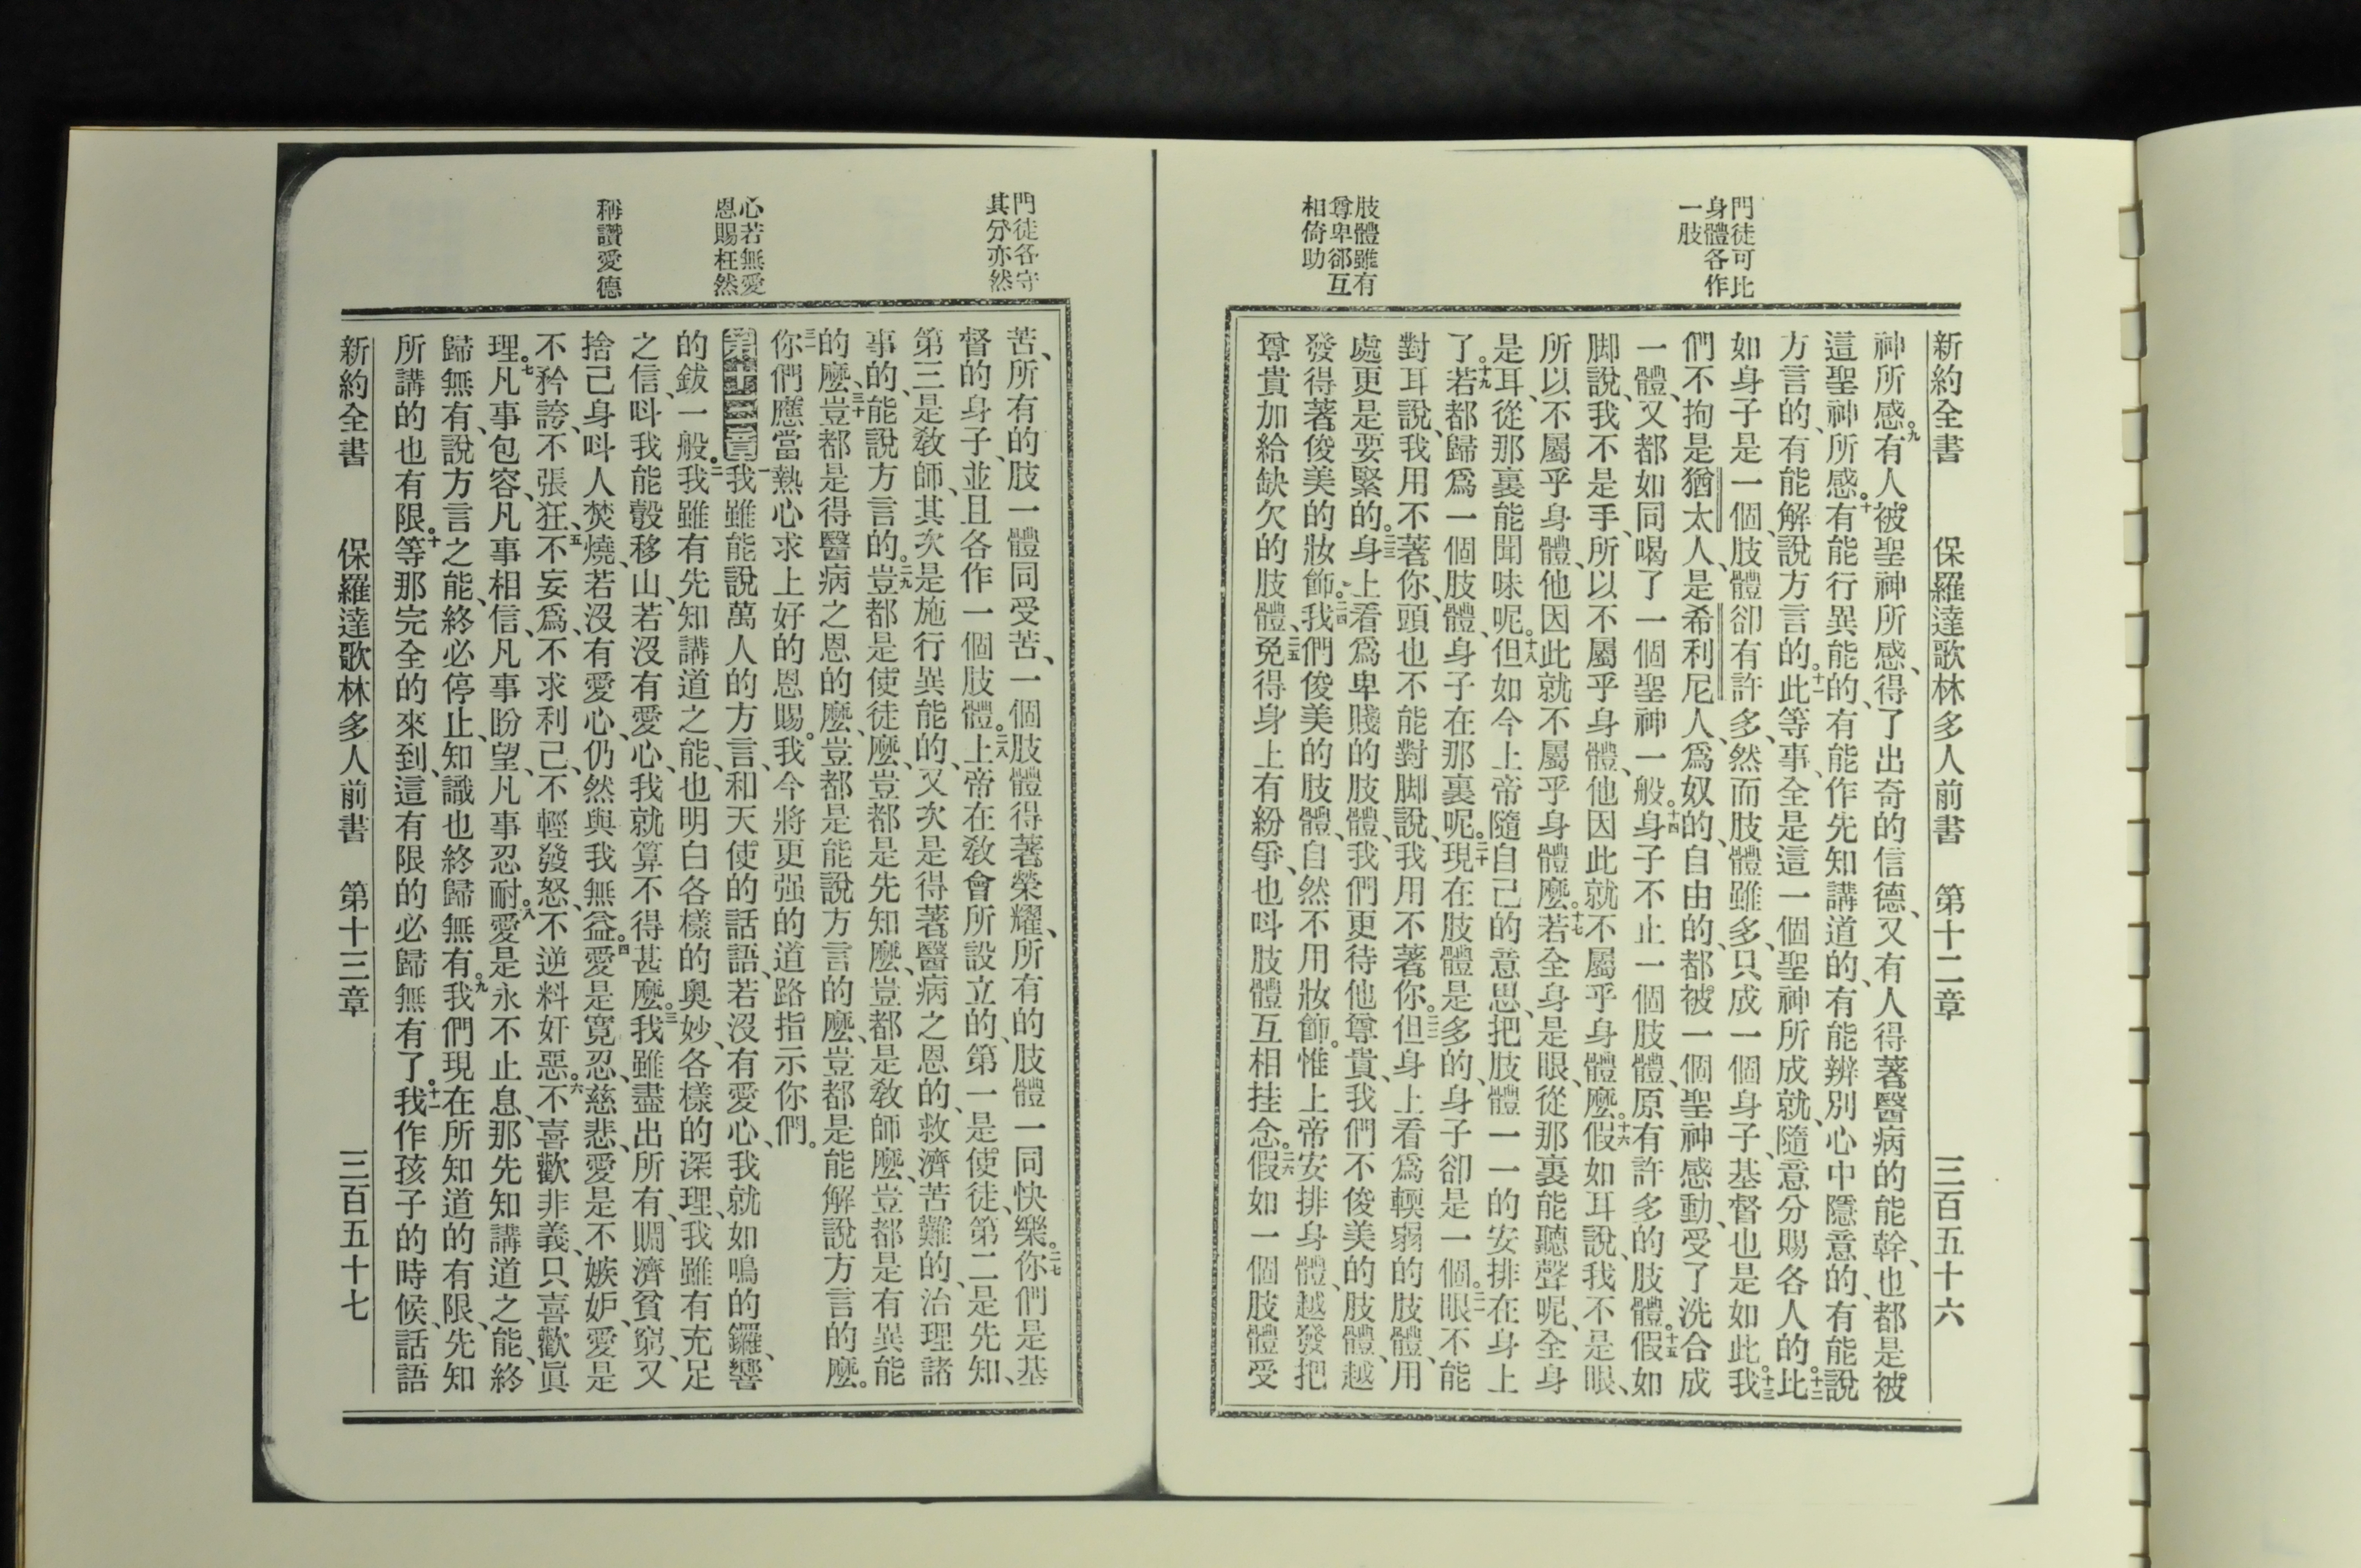 門徒可比
身體各作
一肢
肢體雖有
尊卑郤互
相倚助
新約全書 保羅達歌林多人前書 第十二章 三百五十六
神所感。九有人被聖神所感、得了出奇的信德、又有人得著醫病的能幹、也都是被
這聖神所感。十有能行異能的、有能作先知講道的、有能辨別心中隱意的、有能說
方言的、有能解說方言的。十一此等事、全是這一個聖神所成就、隨意分賜各人的。十二比
如身子是一個、肢體卻有許多、然而肢體雖多、只成一個身子、基督也是如此。十三我
們不拘是猶太人、是希利尼人、爲奴的、自由的、都被一個聖神感動、受了洗合成
一體、又都如同喝了一個聖神一般。十四身子不止一個肢體、原有許多的肢體。十五假如
脚說、我不是手、所以不屬乎身體、他因此就不屬乎身體麽。十六假如耳說、我不是眼、
所以不屬乎身體、他因此就不屬乎身體麽。十七若全身是眼、從那裏能聽聲呢、全身
是耳、從那裏能聞味呢。十八但如今上帝隨自己的意思、把肢體一一的安排在身上
了。十九若都歸爲一個肢體、身子在那裏呢。二十現在肢體是多的、身子卻是一個。二一眼不能
對耳說、我用不著你、頭也不能對脚說、我用不著你。二二但身上看爲輭弱的肢體、用
處更是要緊的。二三身上看爲卑賤的肢體、我們更待他尊貴、我們不俊美的肢體、越
發得著俊美的妝飾。二四我們俊美的肢體、自然不用妝飾。惟上帝安排身體、越發把
尊貴加給缺欠的肢體、二五免得身上有紛爭、也呌肢體互相挂念。二六假如一個肢體受
門徒各守
其分亦然
心若無愛
恩賜枉然
稱讚愛德
苦、所有的肢一體同受苦、一個肢體得著榮耀、所有的肢體一同快樂。二七你們是基
督的身子、並且各作一個肢體。二八上帝在教會所設立的、第一是使徒、第二是先知、
第三是教師、其次是施行異能的、又次是得著醫病之恩的、救濟苦難的、治理諸
事的、能說方言的。二九豈都是使徒麽、豈都是先知麽、豈都是教師麽、豈都是有異能
的麽、三十豈都是得醫病之恩的麽、豈都是能說方言的麽、豈都是能解說方言的麽。
三一你們應當熱心求上好的恩賜。我今將更强的道路指示你們。
第十三章一我雖能說萬人的方言、和天使的話語、若沒有愛心、我就如鳴的鑼、響
的鈸一般。二我雖有先知講道之能、也明白各樣的奧妙、各樣的深理、我雖有充足
之信、呌我能彀移山、若沒有愛心、我就算不得甚麽。三我雖盡出所有、賙濟貧窮、又
捨己身呌人焚燒、若沒有愛心、仍然與我無益。四愛是寬忍、慈悲、愛是不嫉妒、愛是
不矜誇、不張狂、五不妄爲、不求利己、不輕發怒、不逆料奸惡。六不喜歡非義、只喜歡眞
理。七凡事包容、凡事相信、凡事盼望、凡事忍耐。八愛是永不止息、那先知講道之能、終
歸無有、說方言之能、終必停止、知識也終歸無有。九我們現在所知道的有限、先知
所講的也有限。十等那完全的來到、這有限的必歸無有了。十一我作孩子的時候、話語
新約全書 保羅達歌林多人前書 第十三章 三百五十七